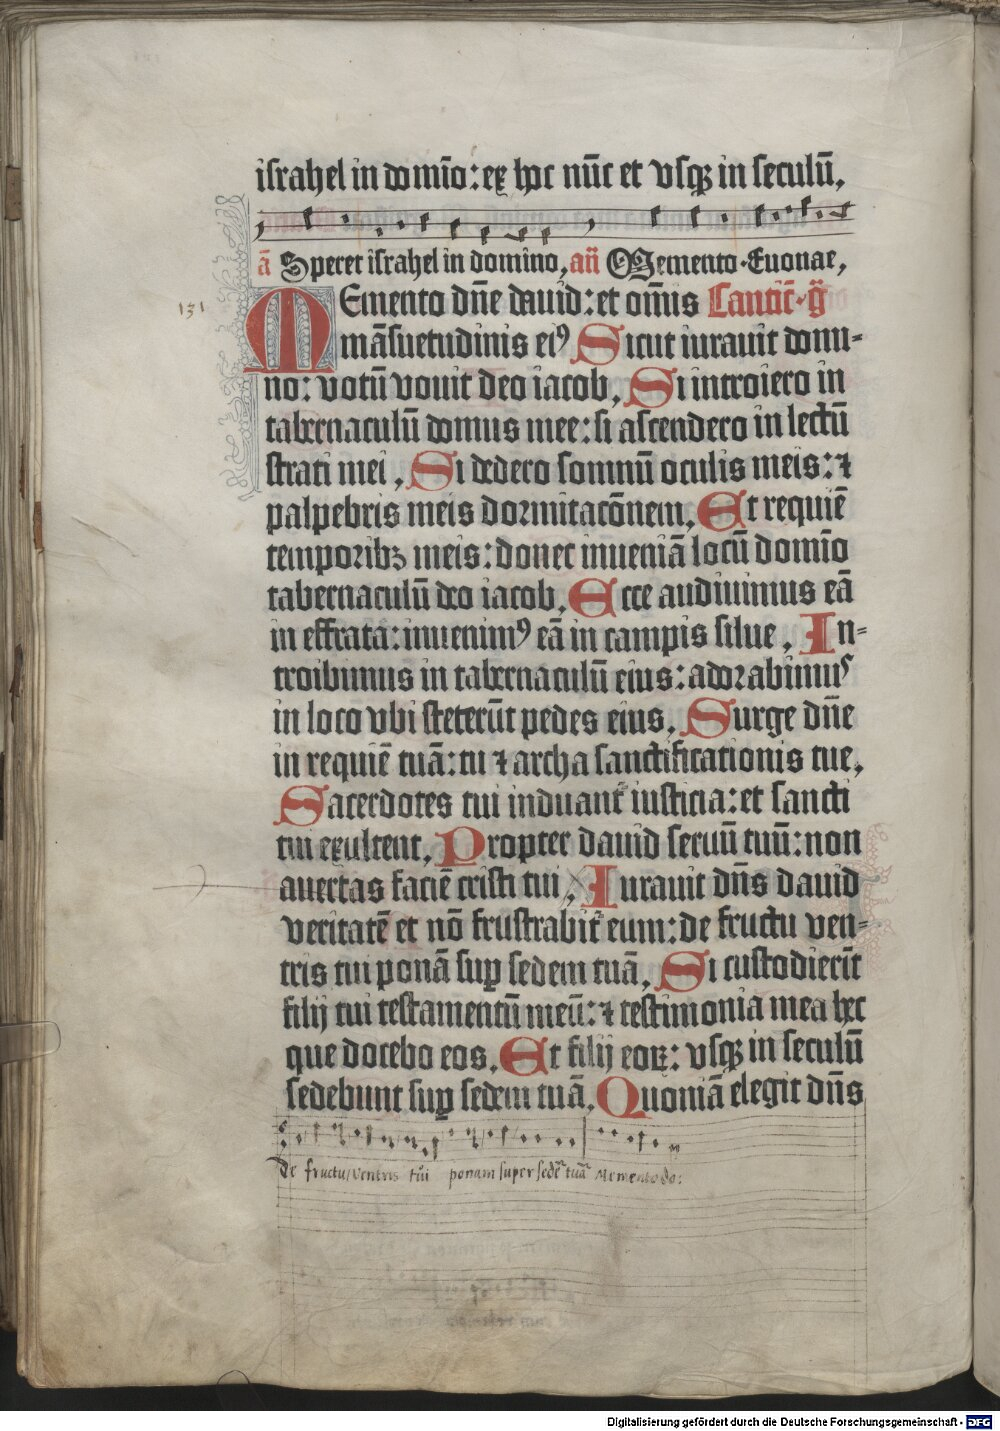 israhel in domīo: ex hoc nūc et vsq̄ in seculū.
ā Speret israhel in domino, añ Memento. Euonae,
Memento dn̄e dauid: et om̄is Cantic̄. gͣ
131
māsuetudinis eiꝰ Sicut iurauit domi-
no: votū vouit deo iacob, Si introiero in
tabernaculū domus mee: si ascendero in lectū
strati mei, Si dedero somnū oculis meis: ⁊
palpebris meis dormitacōnem, Et requiē
temporibꝫ meis: donec inueniā locū domīo
tabernaculū deo iacob, Ecce audiuimus eā
in effrata: inuenimꝰ eā in campis silue, In-
troibimus in tabernaculū eius: adorabimus
in loco vbi steterūt pedes eius, Surge dn̄e
in requiē tuā: tu ⁊ archa sanctificationis tue,
Sacerdotes tui induant᷑ iusticia: et sancti
tui exultent, Propter dauid seruū tuū: non
auertas faciē cristi tui, Iurauit dn̄s dauid
veritatē et nō frustrabit᷑ eum: de fructu ven-
tris tui ponā suꝑ sedem tuā, Si custodierīt
filij tui testamentū meū: ⁊ testimonia mea hec
que docebo eos, Et filij eoꝝ: vsq̄ in seculū
sedebunt suꝑ sedem tuā, Quoniā elegit dn̄s
De fructu ventris tui ponam super sedē tuā Memento do:
Digitalisierung gefördert durch die Deutsche Forschungsgemeinschaft - DFG